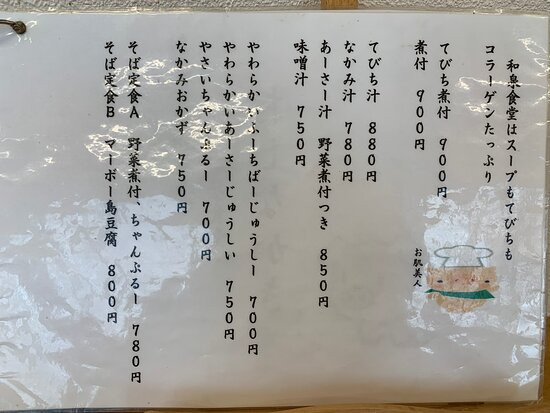 和泉食堂はスープもてびちも
コラーゲンたっぷり
てびち煮付 900円
煮付 900円
お肌美人
てびち汁 880円
なかみ汁 780円
あーさー汁 野菜煮付つき 850円
味噌汁 750円
やわらかいふーちばーじゅうしー 700円
やわらかいあーさーじゅうしい 750円
やさいちゃんぷるー 700円
なかみおかず 750円
そば定食A 野菜煮付、ちゃんぷるー 780円
そば定食B マーボー島豆腐 800円